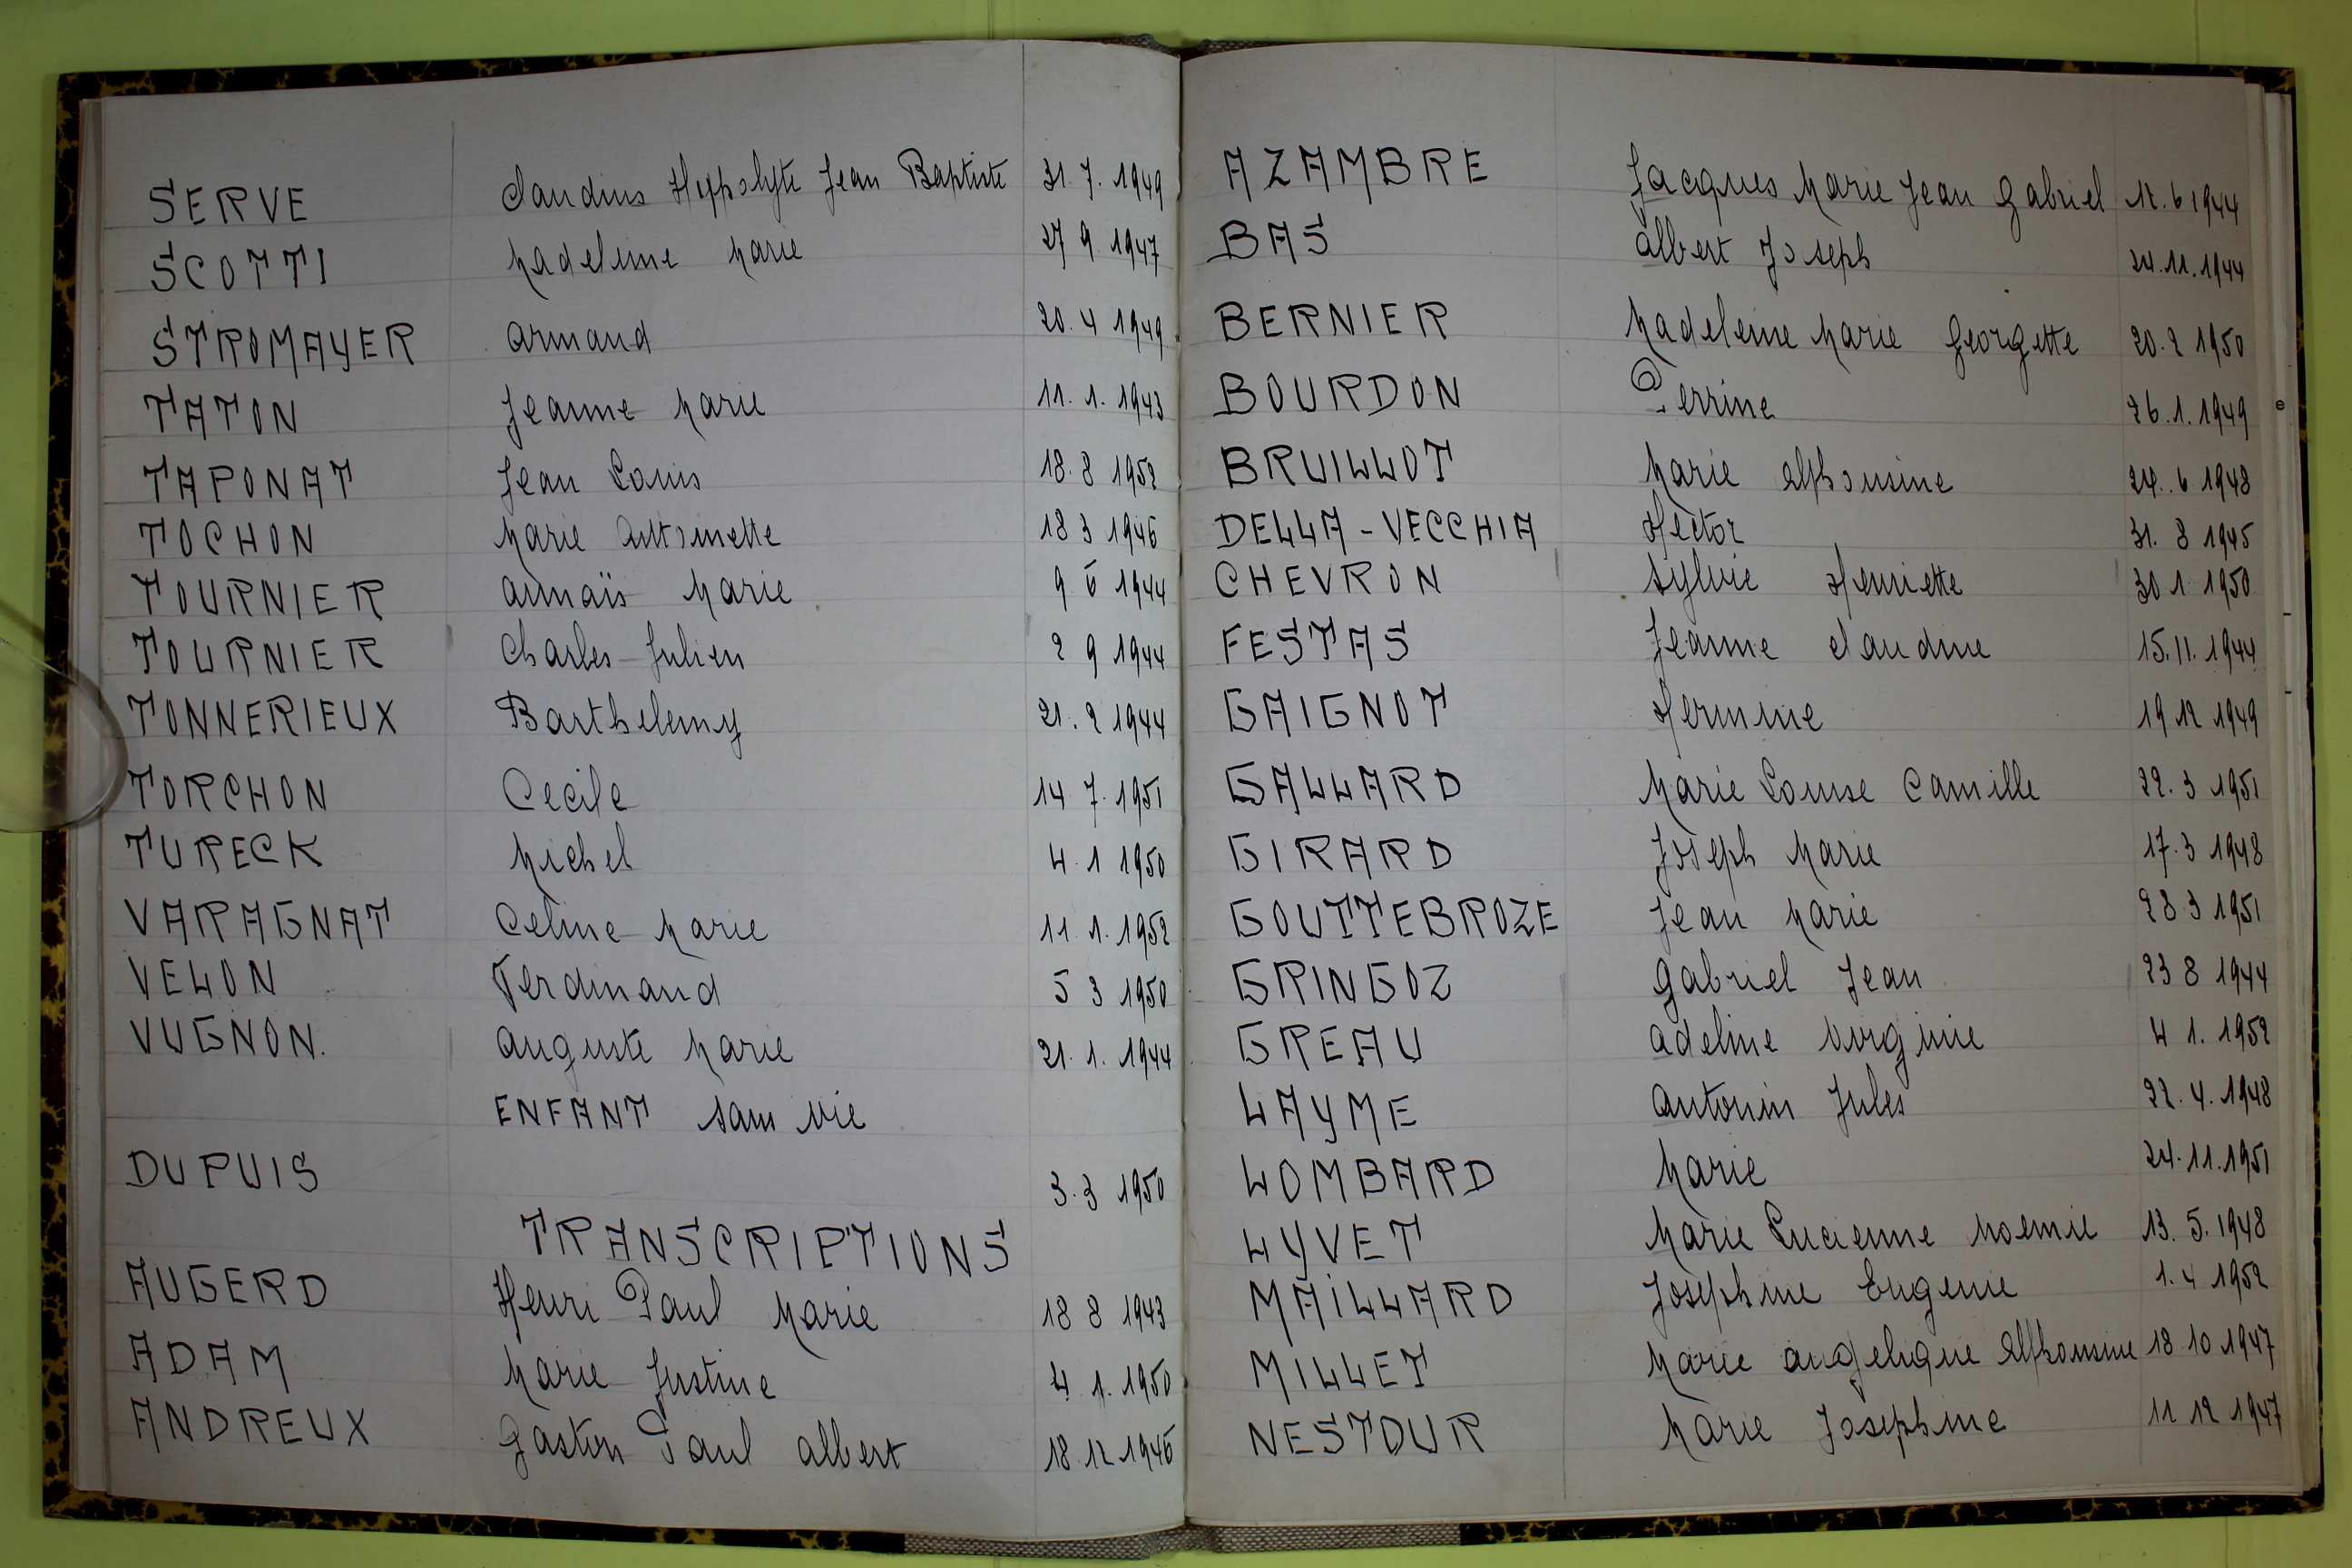 SERVE Claudius Hyppolyte Jean Baptiste 31.7.1949
SCOTTI Madeleine Marie 27 9 1947
STROMAYER Armand 20.4 1949
TATON Jeanne Marie 11.1.1943
TAPONAT Jean Louis 18.8 1952
TOCHON Marie Antoinette 18 3 1946
TOURNIER Armaïs Marie 9 6 1944
TOURNIER Charles Julien 2 9 1944
TONNERIEUX Barthelemy 21.2 1944
TORCHON Cecile 14 7.1951
TURECK Michel 4.1 1950
VARAGNAT Celine Marie 11.1.1952
VELON Ferdinand 5 3 1950
VUGNON. Auguste Marie 21.1.1944
ENFANT sans vie
DUPUIS 3.3 1950
TRANSCRIPTIONS
AUGERD Henri Paul Marie 18 8 1943
ADAM Marie Justine 4 1.1950
ANDREUX Gaston Paul Albert 18.12 1946
AZAMBRE Jacques Marie Jean Gabriel 12.6 1944
BAS Albert Joseph 24.11.1944
BERNIER Madeleine Marie Georgette 20.2 1950
BOURDON Perrine 26.1.1949
BRUILLOT Marie Alphonsine 24.6 1948
DELLA-VECCHIA Hector 31.8 1945
CHEVRON Sylvie Henriette 30 1 1950
FESTAS Jeanne Claudine 15.11.1944
GAIGNOT Hermine 19 12 1949
GALLARD Marie Louise Camille 22.3 1951
GIRARD Joseph Marie 17.3 1948
GOUTTEBROZE Jean Marie 28 3 1951
GRINGOZ Gabriel Jean 23 8 1944
GREAU Adeline Virginie 4 1.1952
LAYME Antonin Jules 22.4.1948
LOMBARD Marie 24.11.1951
LYVET Marie Lucienne Noemie 13.5.1948
MAILLARD Josephine Eugenie 1.4 1952
MILLET Marie Angelique Alphonsine 18 10 1947
NESTOUR Marie Josephine 11 12 1947